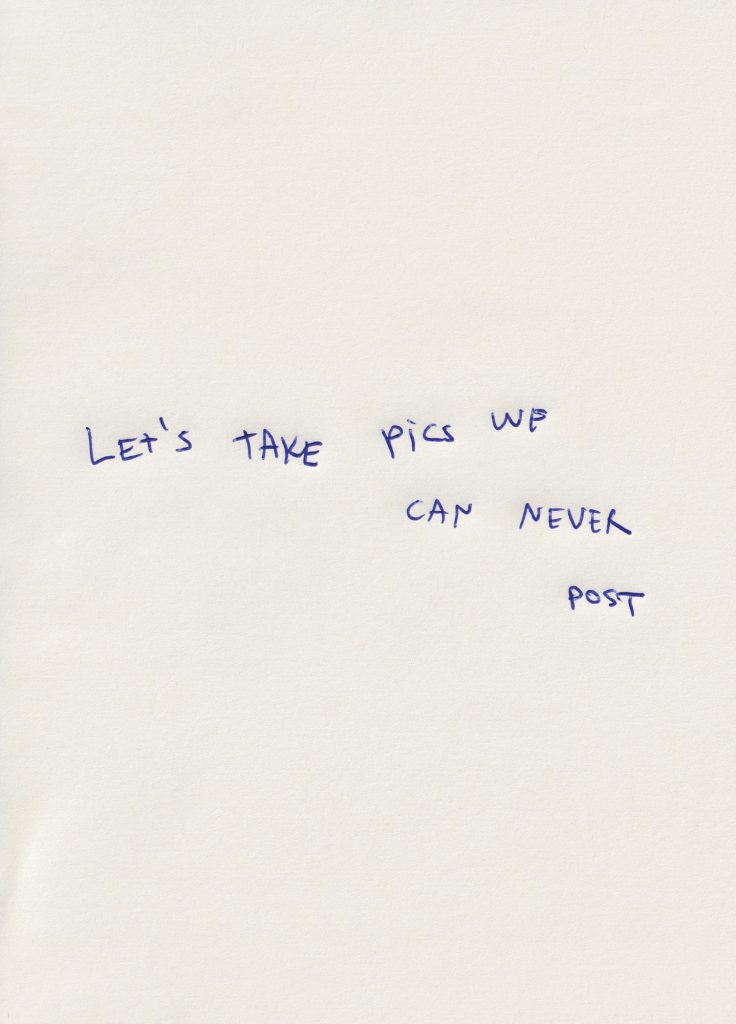 LET'S TAKE PICS WE
CAN NEVER
POST